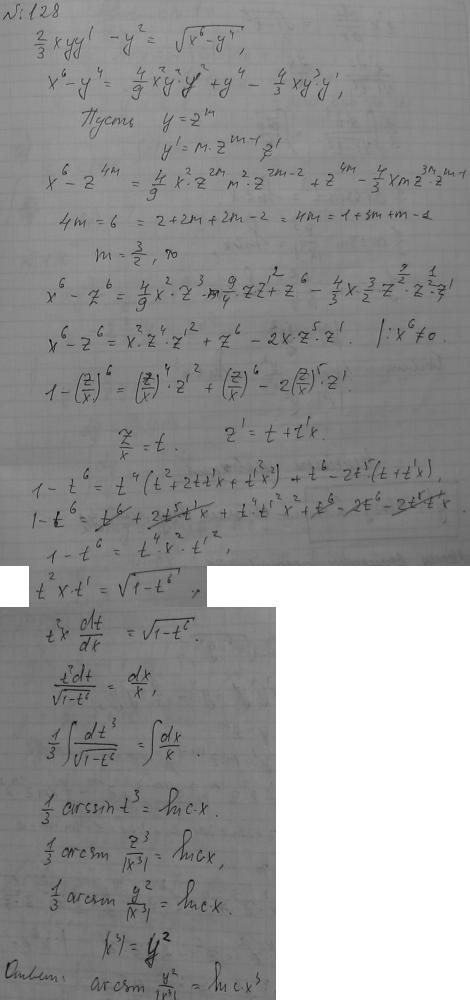 № 128
2/3 xyy' - y² = √(x⁶-y⁴),
x⁶-y⁴ = 4/9 x²y²y'² + y⁴ - 4/3 xy³y',
Пусть y = z^m
y' = m·z^(m-1) z'
x⁶ - z^(4m) = 4/9 x²·z^(2m) m²·z^(2m-2) + z^(4m) - 4/3 x m z^(3m)·z^(m-1)
4m = 6 = 2+2m+2m-2 = 4m = 1+3m+m-1
m = 3/2,
x⁶ - z⁶ = 4/9 x²·z³· 9/4 · z z'² + z⁶ - 4/3 x· 3/2 z^(9/2)·z^(1/2)·z'
x⁶ - z⁶ = x²·z⁴·z'² + z⁶ - 2x·z⁵·z'. |:x⁶≠0.
1-(z/x)⁶ = (z/x)⁴·z'² + (z/x)⁶ - 2(z/x)⁵·z'.
z/x = t. z' = t + t'x.
1-t⁶ = t⁴(t² + 2tt'x + t'²x²) + t⁶ - 2t⁵(t + t'x),
1-t⁶ = t⁶ + 2t⁵t'x + t⁴·t'²x² + t⁶ - 2t⁶ - 2t⁵t'x.
1-t⁶ = t⁴·x²·t'²,
t²x·t' = √(1-t⁶),
t²x dt/dx = √(1-t⁶).
t²dt/√(1-t⁶) = dx/x,
1/3 ∫ dt³/√(1-t⁶) = ∫ dx/x.
1/3 arcsin t³ = ln c·x.
1/3 arcsin z³/|x³| = ln cx,
1/3 arcsin y²/|x³| = ln cx.
|x³| = y²
Ответ: arcsin y²/|x³| = ln c·x³